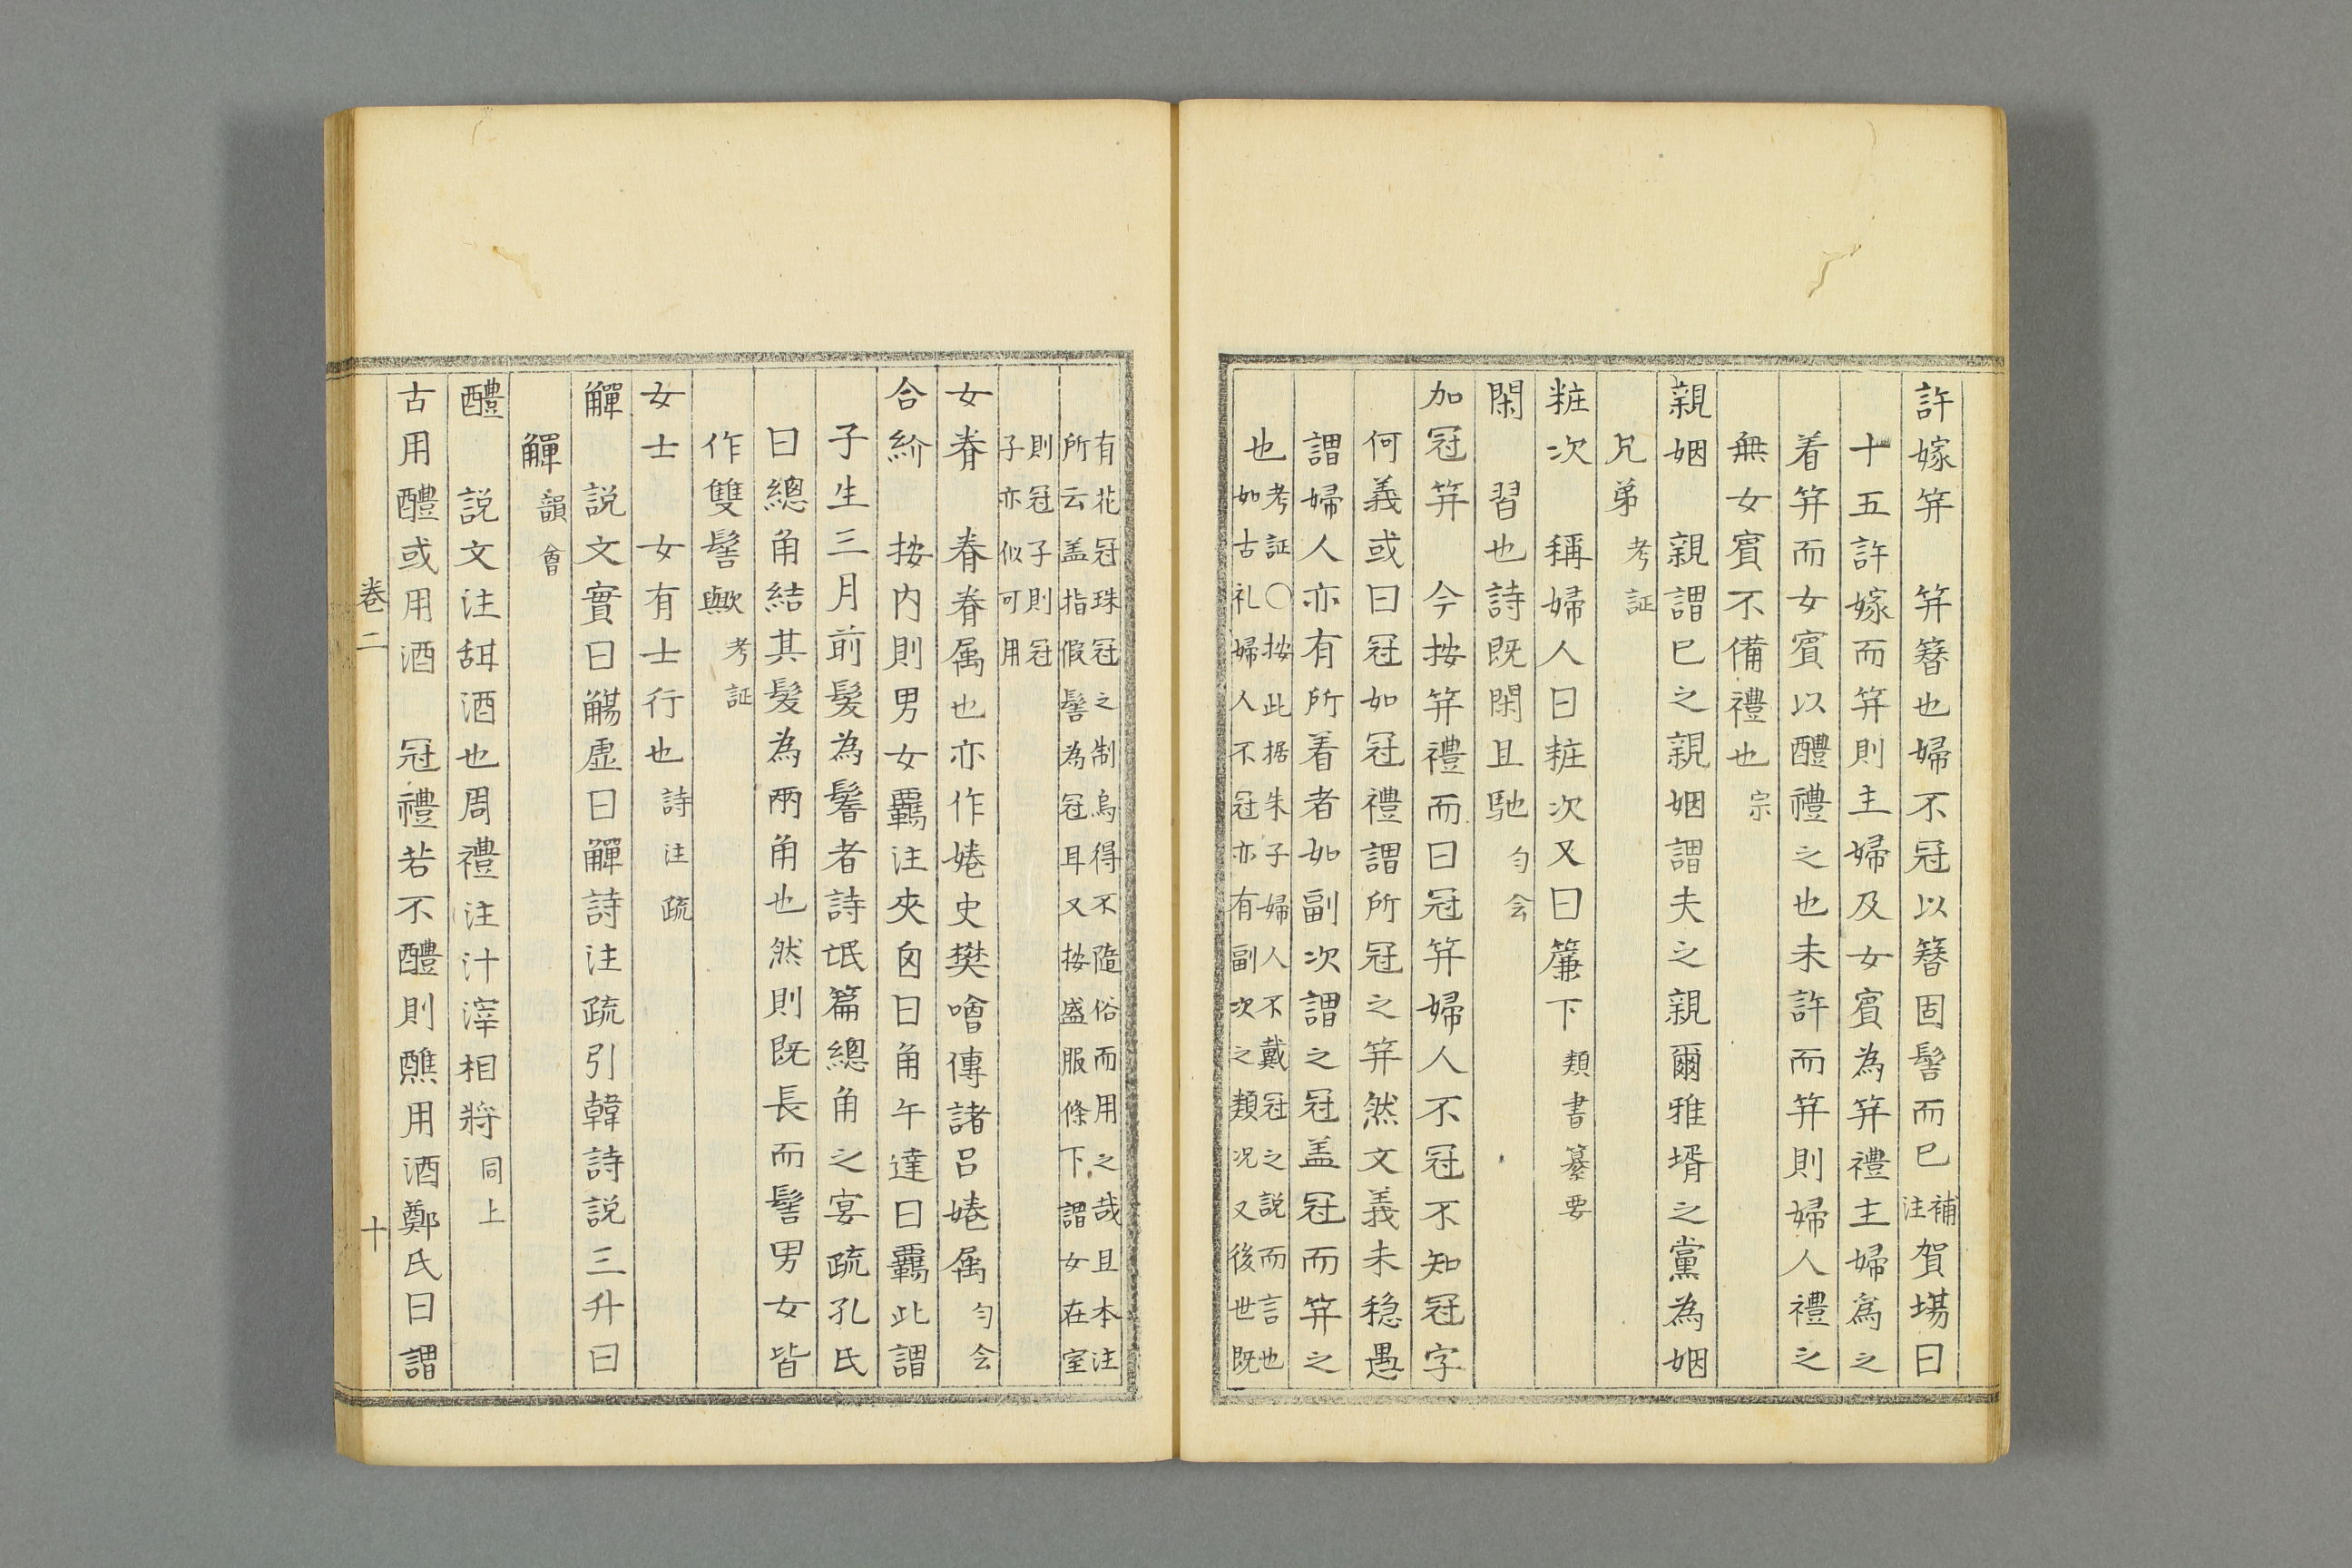 許嫁笄 笄簪也婦不冠以簪固髻而已補注賀瑒曰
十五許嫁而笄則主婦及女賓為笄禮主婦爲之
着笄而女賓以醴禮之也未許而笄則婦人禮之
無女賓不備禮也宗
親姻 親謂已之親姻謂夫之親爾雅壻之黨為姻
兄弟考証
粧次 稱婦人曰粧次又曰簾下類書纂要
閑 習也詩既閑且馳匀会
加冠笄 今按笄禮而曰冠笄婦人不冠不知冠字
何義或曰冠如冠禮謂所冠之笄然文義未穏愚
謂婦人亦有所着者如副次謂之冠盖冠而笄之
也考証〇按此据朱子婦人不戴冠之説而言也
如古礼婦人不冠亦有副次之類况又後世既
有花冠珠冠之制烏得不隨俗而用之哉且本注
所云盖指假髻為冠耳又按盛服條下謂女在室
則冠子則冠
子亦似可用
女眷 眷眷属也亦作婘史樊噲傳諸呂婘属匀会
合紒 按内則男女羈注夾囟曰角午達曰羈此謂
子生三月前髮為鬌者詩氓篇總角之宴疏孔氏
曰總角結其髮為兩角也然則既長而髻男女皆
作雙髻歟考証
女士 女有士行也詩注疏
觶 説文實曰觴虛曰觶詩注疏引韓詩説三升曰
觶韻會
醴 説文注䎶酒也周禮注汁滓相將同上
古用醴或用酒 冠禮若不醴則醮用酒鄭氏曰謂
卷二 十